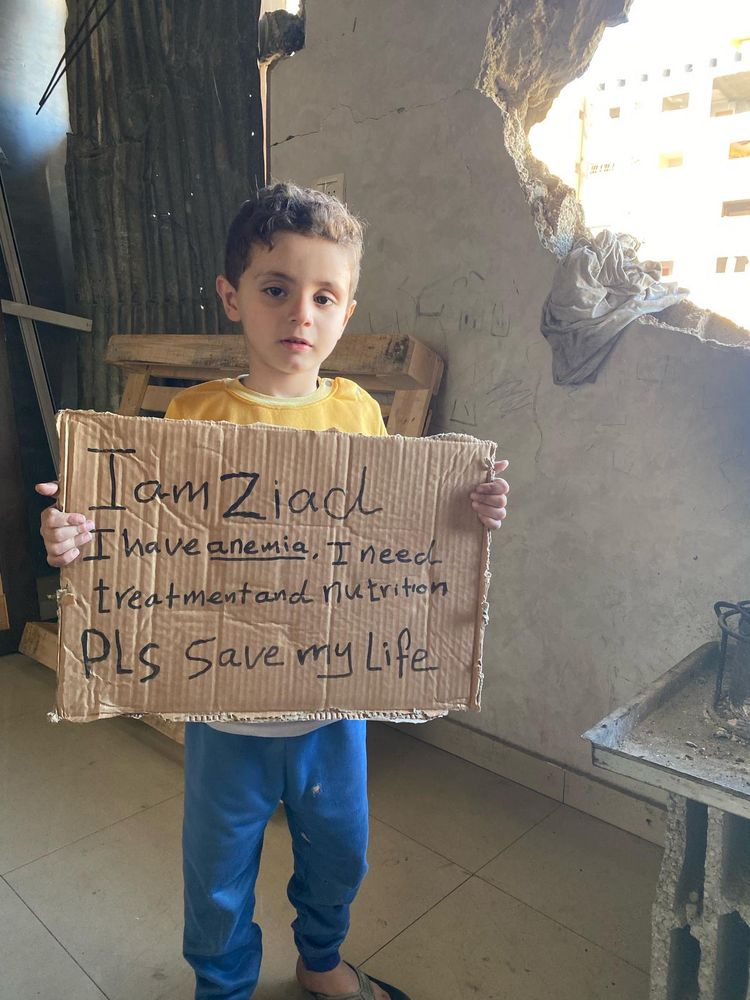 I am Ziad
I have anemia. I need
treatment and nutrition
PLS Save my Life